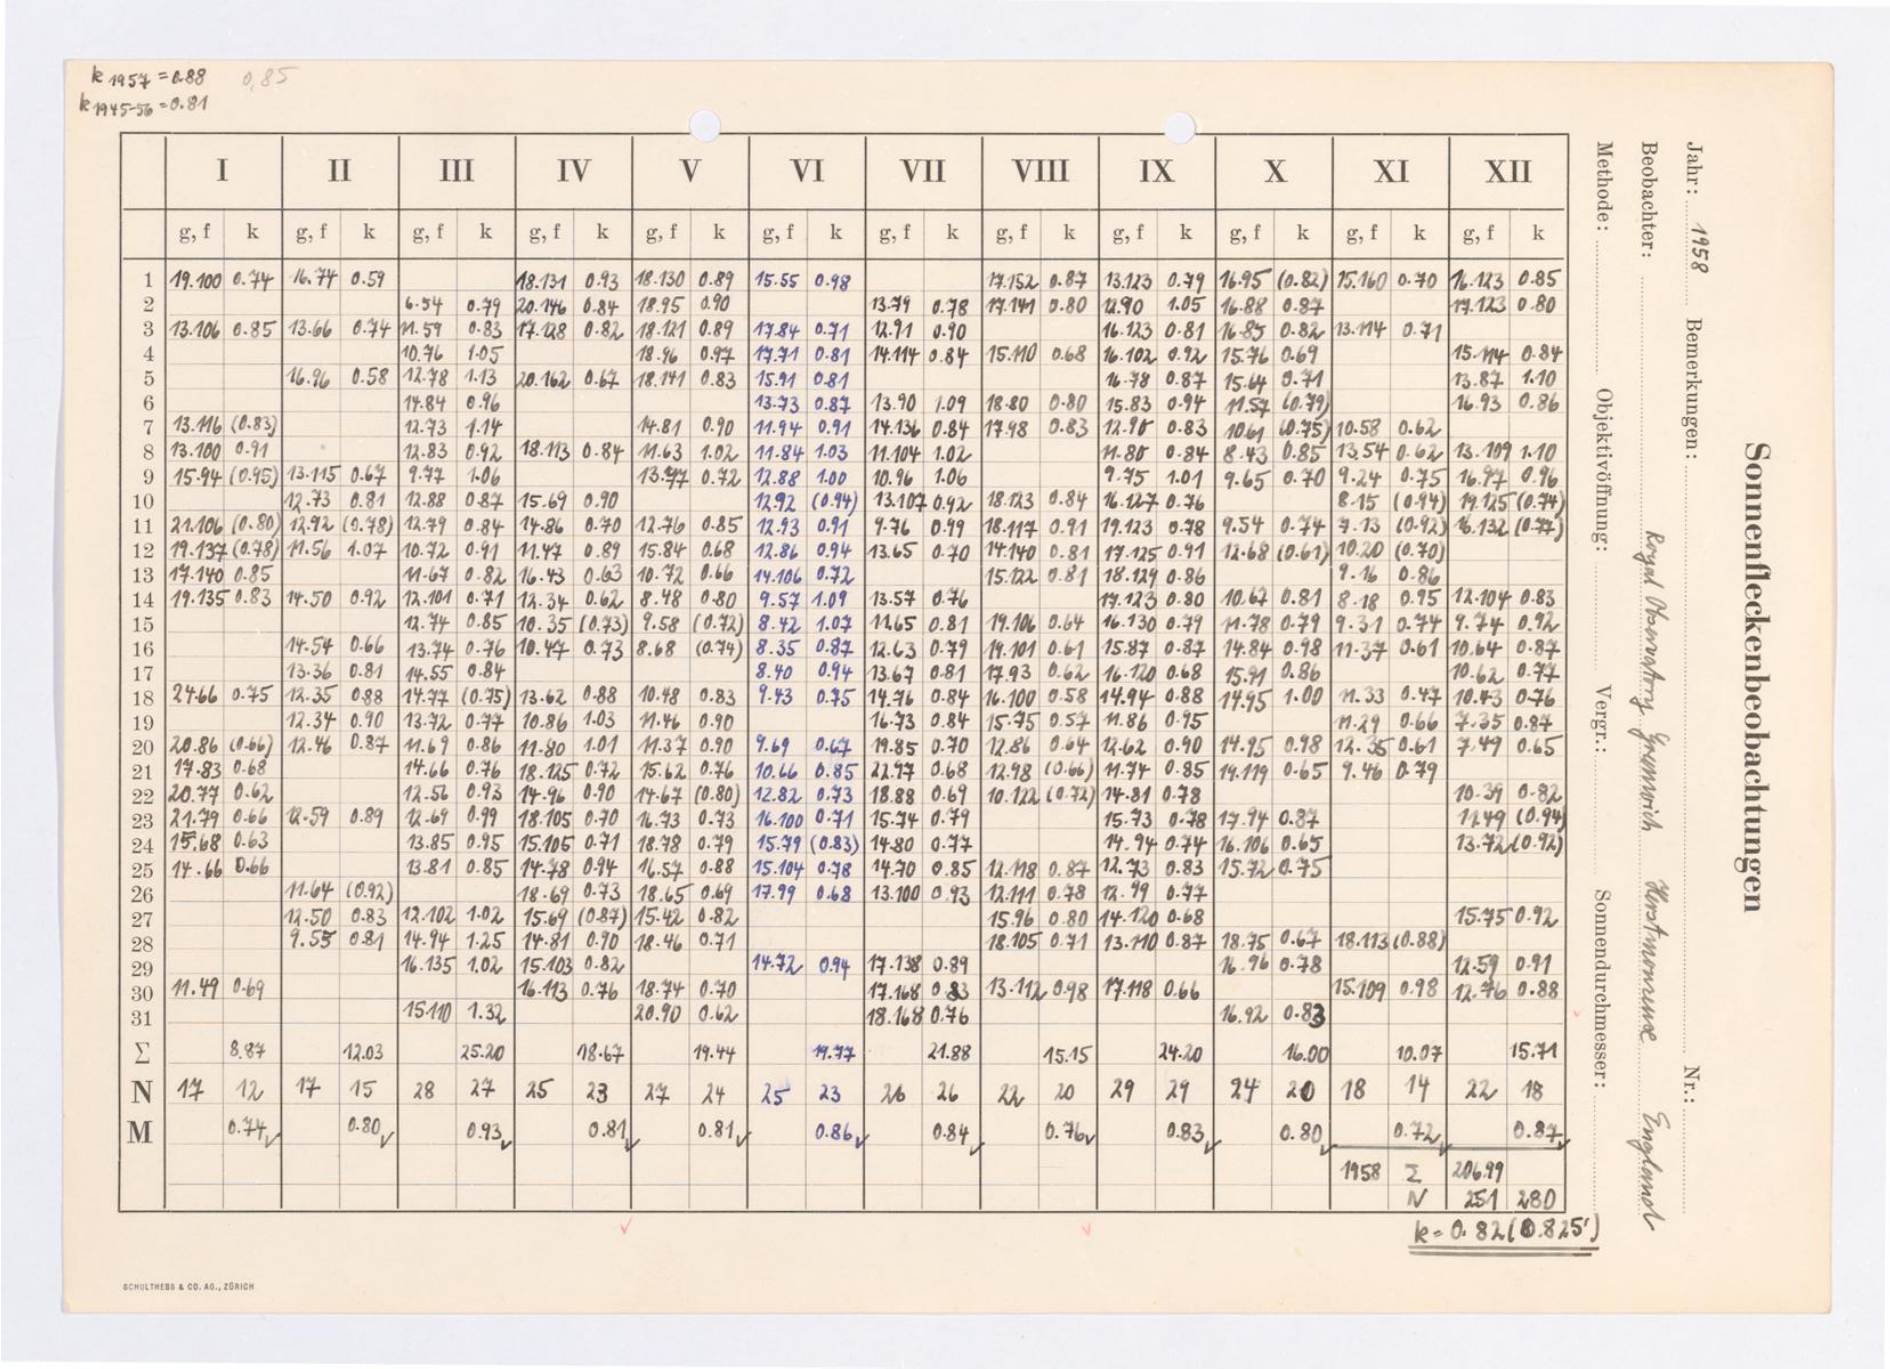 k 1957 = 0.88 0,85
k 1945-56 = 0.81
Sonnenfleckenbeobachtungen
Jahr: 1958 Bemerkungen: Nr.:
Beobachter: Royal Observatory Greenwich Herstmonceux England
Methode: Objektivöffnung: Vergr.: Sonnendurchmesser:
I II III IV V VI VII VIII IX X XI XII
g, f k g, f k g, f k g, f k g, f k g, f k g, f k g, f k g, f k g, f k g, f k g, f k
1 19.100 0.74 16.74 0.59 18.131 0.93 18.130 0.89 15.55 0.98 17.152 0.87 13.123 0.79 16.95 (0.82) 15.160 0.70 16.123 0.85
2 6.54 0.79 20.146 0.84 18.95 0.90 13.79 0.78 17.141 0.80 12.90 1.05 16.88 0.87 17.123 0.80
3 13.106 0.85 13.66 0.74 11.59 0.83 17.128 0.82 18.121 0.89 17.84 0.71 12.91 0.90 16.123 0.81 16.85 0.82 13.114 0.71
4 10.76 1.05 18.96 0.97 17.71 0.81 14.114 0.84 15.110 0.68 16.102 0.92 15.76 0.69 15.114 0.84
5 16.96 0.58 12.78 1.13 20.162 0.67 18.141 0.83 15.91 0.81 16.78 0.87 15.64 0.71 13.87 1.10
6 14.84 0.96 13.73 0.87 13.90 1.09 18.80 0.80 15.83 0.94 11.57 (0.79) 16.93 0.86
7 13.116 (0.83) 12.73 1.14 14.81 0.90 11.94 0.91 14.136 0.84 17.98 0.83 12.98 0.83 10.61 (0.75) 10.58 0.62
8 13.100 0.91 12.83 0.92 18.113 0.84 11.63 1.02 11.84 1.03 11.104 1.02 11.80 0.84 8.43 0.85 13.54 0.62 13.109 1.10
9 15.94 (0.95) 13.115 0.67 9.77 1.06 13.97 0.72 12.88 1.00 10.96 1.06 9.75 1.01 9.65 0.70 9.24 0.75 16.97 0.96
10 12.73 0.81 12.88 0.87 15.69 0.90 12.92 (0.94) 13.107 0.92 18.123 0.84 16.127 0.76 8.15 (0.94) 19.125 (0.74)
11 21.106 (0.80) 12.92 (0.78) 12.79 0.84 14.86 0.70 12.76 0.85 12.93 0.91 9.76 0.99 18.117 0.91 19.123 0.78 9.54 0.74 7.13 (0.92) 16.132 (0.77)
12 19.137 (0.78) 11.56 1.07 10.72 0.91 11.47 0.89 15.84 0.68 12.86 0.94 13.65 0.70 14.140 0.81 17.125 0.91 12.68 (0.61) 10.20 (0.70)
13 17.140 0.85 11.67 0.82 16.43 0.63 10.72 0.66 14.106 0.72 15.122 0.81 18.129 0.86 9.16 0.86
14 19.135 0.83 14.50 0.92 12.101 0.71 12.34 0.62 8.48 0.80 9.57 1.09 13.57 0.76 17.123 0.80 10.67 0.81 8.18 0.95 12.104 0.83
15 12.74 0.85 10.35 (0.73) 9.58 (0.72) 8.42 1.07 11.65 0.81 19.106 0.64 16.130 0.79 11.78 0.79 9.31 0.74 9.74 0.92
16 14.54 0.66 13.74 0.76 10.47 0.73 8.68 (0.74) 8.35 0.87 12.63 0.79 19.101 0.61 15.87 0.87 14.84 0.98 11.37 0.61 10.64 0.87
17 13.36 0.81 14.55 0.84 8.40 0.94 13.67 0.81 17.93 0.62 16.120 0.68 15.91 0.86 10.62 0.77
18 24.66 0.75 12.35 0.88 14.77 (0.75) 13.62 0.88 10.48 0.83 9.43 0.75 14.76 0.84 16.100 0.58 14.94 0.88 14.95 1.00 11.33 0.47 10.43 0.76
19 12.34 0.90 13.72 0.77 10.86 1.03 11.46 0.90 16.73 0.84 15.75 0.57 11.86 0.95 11.29 0.66 7.35 0.87
20 20.86 (0.66) 12.46 0.87 11.69 0.86 11.80 1.01 11.37 0.90 9.69 0.67 19.85 0.70 12.86 0.64 12.62 0.90 14.95 0.98 12.35 0.61 7.49 0.65
21 17.83 0.68 14.66 0.76 18.125 0.72 15.62 0.76 10.66 0.85 22.97 0.68 12.98 (0.66) 11.74 0.85 19.119 0.65 9.46 0.79
22 20.77 0.62 12.56 0.93 14.96 0.90 14.67 (0.80) 12.82 0.73 18.88 0.69 10.122 (0.72) 14.81 0.78 10.39 0.82
23 21.79 0.66 12.59 0.89 12.69 0.99 18.105 0.70 16.73 0.73 16.100 0.71 15.74 0.79 15.73 0.78 17.94 0.87 11.49 (0.94)
24 15.68 0.63 13.85 0.95 15.105 0.71 18.78 0.79 15.79 (0.83) 14.80 0.77 14.94 0.74 16.106 0.65 13.72 (0.92)
25 14.66 0.66 13.81 0.85 14.78 0.94 16.57 0.88 15.104 0.78 14.70 0.85 12.118 0.87 12.73 0.83 15.72 0.75
26 11.64 (0.92) 18.69 0.73 18.65 0.69 17.99 0.68 13.100 0.93 12.111 0.78 12.79 0.77
27 12.50 0.83 12.102 1.02 15.69 (0.87) 15.42 0.82 15.96 0.80 14.120 0.68 15.75 0.92
28 9.55 0.81 14.94 1.25 14.81 0.90 18.46 0.71 18.105 0.71 13.110 0.87 18.75 0.67 18.113 (0.88)
29 16.135 1.02 15.103 0.82 14.72 0.94 17.138 0.89 16.96 0.78 12.59 0.91
30 11.49 0.69 16.113 0.76 18.74 0.70 17.168 0.83 13.112 0.98 17.118 0.66 15.109 0.98 12.76 0.88
31 15.110 1.32 20.90 0.62 18.168 0.76 16.92 0.83
Σ 8.87 12.03 25.20 18.67 19.44 19.77 21.88 15.15 24.20 16.00 10.07 15.71
N 17 12 17 15 28 27 25 23 27 24 25 23 26 26 22 20 29 29 24 20 18 14 22 18
M 0.74 0.80 0.93 0.81 0.81 0.86 0.84 0.76 0.83 0.80 0.72 0.87
1958 Σ 206.99
N 251 280
k = 0.82 (0.825)
SCHULTHESS & CO. AG., ZÜRICH